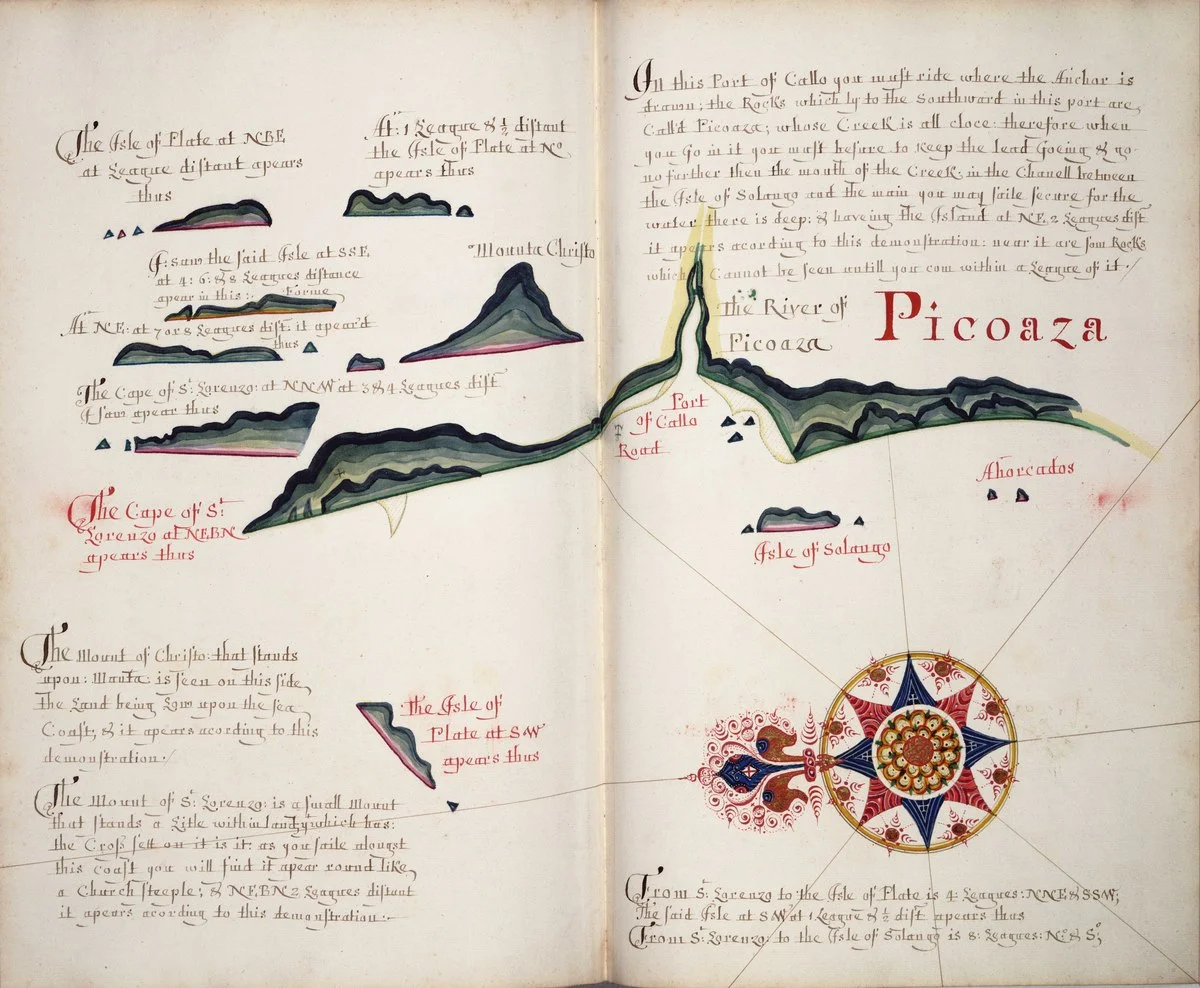 The Isle of Plate at NBE
at League distant apears
thus
At: 1 League & ½ distant
the Isle of Plate at No
apears thus
I: saw the said Isle at SSE
at 4: 6: & 8 Leagues distance
apear in this: Forme
Mounta Christo
At NE: at 7 or 8 Leagues dist: it apear'd
thus
The Cape of St: Lorenzo: at NNW at 3 & 4 Leagues dist
I saw apear thus
The Cape of St:
Lorenzo at NEBN
apears thus
The Mount of Christo: that stands
upon: Manta: is seen on this side
the Land being Low upon the sea
Coast, & it apears acording to this
demonstration:/
the Isle of
Plate at SW
apears thus
The Mount of St: Lorenzo: is a small Mount
that stands a Litle within land: which has:
the Cross sett on it is it: as you saile alongst
this coast you will find it apear round like
a Church steeple; & NEBN 2 Leagues distant
it apears acording to this demonstration:-
In this Port of Callo you must ride where the Anchor is
drawn; the Rocks which ly to the Southward in this port are
Call'd Picoaza; whose Creek is all cloce: therefore when
you Go in it you must besure to keep the lead Going & go
no farther then the mouth of the Creek: in the Chanell between
the Isle of Solango and the main you may saile secure for the
water there is deep: & haveing the Island at NE 2 Leagues dist
it apears acording to this demonstration: near it are som Rocks
which Cannot be seen untill you com within a League of it:/
The River of
Picoaza
Picoaza
Port
of Callo
Road
Ahorcados
Isle of Solango
From St: Lorenzo to the Isle of Plate is 4: Leagues: NNE & SSW;
The said Isle at SW at 1 League & ½ dist apears thus
From St: Lorenzo: to the Isle of Solango is 8: Leagues: No & So;